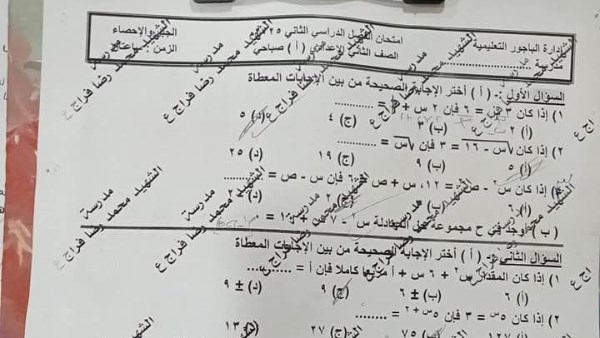 إدارة الباجور التعليمية امتحان الفصل الدراسي الثاني ٢٥ الجبر والإحصاء
مدرسة .................... الصف الثاني الإعدادي ( أ ) صباحي الزمن :
السؤال الأول :- ( أ ) أختر الإجابة الصحيحة من بين الإجابات المعطاة
١) إذا كان ٣ س = ٦ فإن ٢ س + = ..........
(أ) ٢ (ب) ٣ (ج) ٤ (د) ٥
٢) إذا كان √س - ١٦ = ٣ فإن √س = ..........
(أ) ٥ (ب) ٩ (ج) ١٩ (د) ٢٥
إذا كان س٢ - ص٢ = ١٢، س + ص = ٦ فإن س - ص = ..........
(د) ٢
( ب ) أوجد في ح مجموعة حل المعادلة س٢ - ٧ س + ١٠ = ٠
السؤال الثاني :- ( أ ) أختر الإجابة الصحيحة من بين الإجابات المعطاة
١) إذا كان المقدار س٢ + ٦ س + أ مربعا كاملا فإن أ = ..........
(أ) ٦ (ب) ± ٦ (ج) ٩ (د) ± ٩
٢) إذا كان ٥س = ٣ فإن ٥س + ٢ = ..........
(ب) ٧٥ (ج) ٢٧ (د) ١٣
الشهيد محمد رضا فراج ع
مدرسة